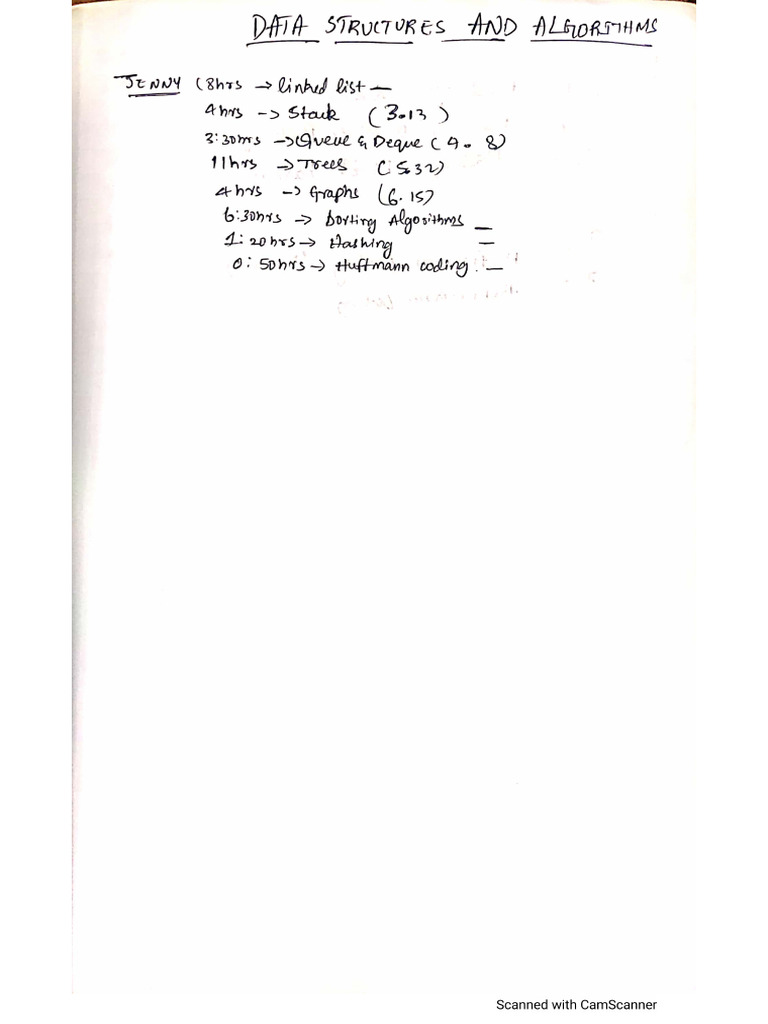 DATA STRUCTURES AND ALGORITHMS
JENNY (8hrs → linked list —
4hrs -> Stack (3.13)
3:30hrs -> Queue & Deque (4.8)
11hrs -> Trees (5.32)
4hrs -> Graphs (6.15)
6:30hrs -> Sorting Algorithms —
1:20hrs -> Hashing —
0:50hrs -> Huffmann coding. —
Scanned with CamScanner